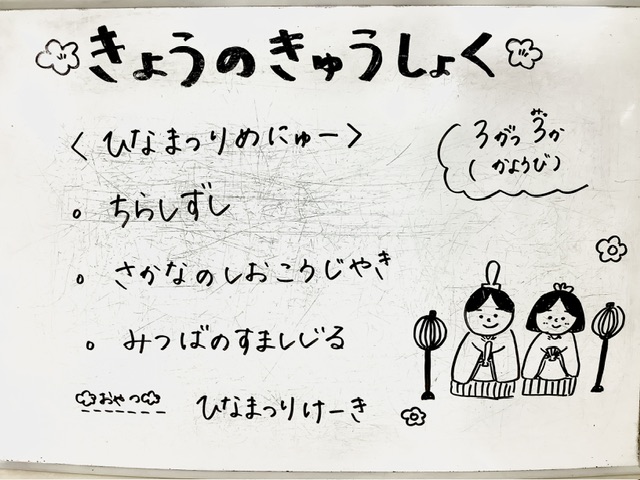 きょうのきゅうしょく
3がつ 3か
みっ
(かようび)
<ひなまつりめにゅー>
。ちらしずし
。さかなのしおこうじやき
。みつばのすましじる
おやつ ひなまつりけーき